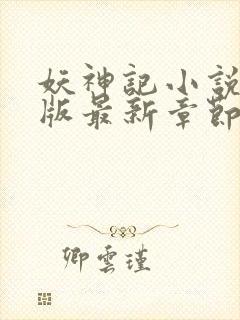 妖神記小說
版最新章節
卿雲瑾